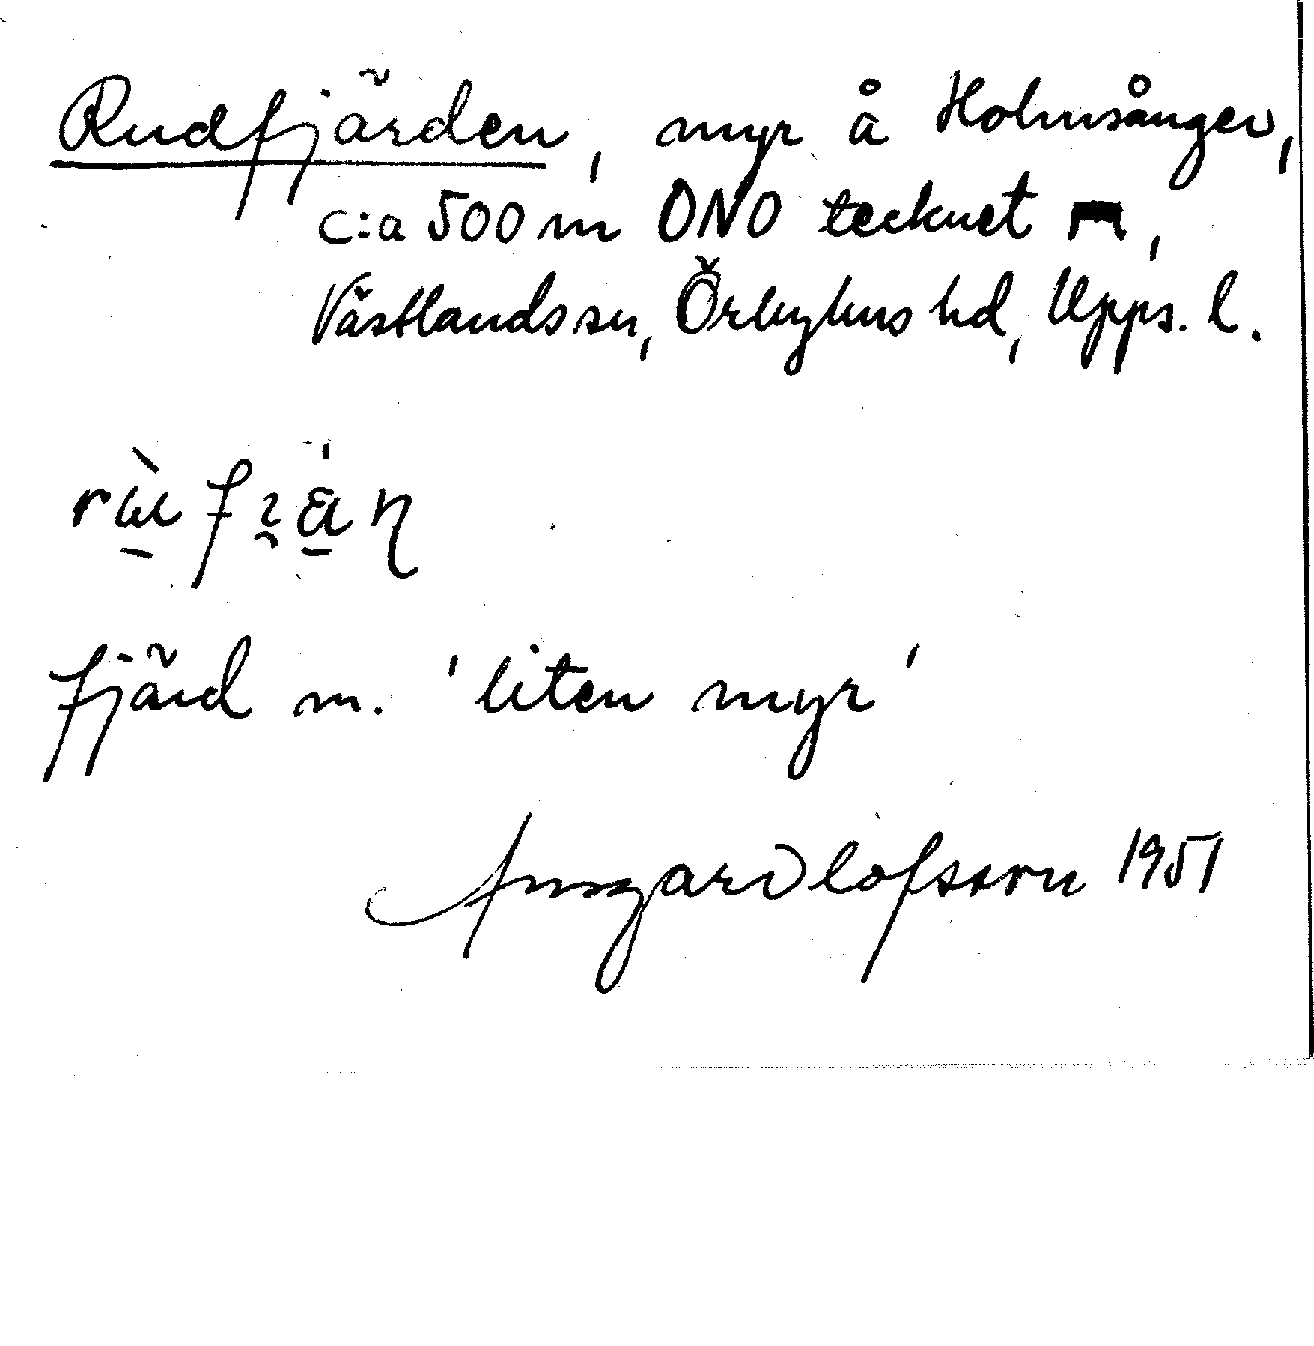 Rudfjärden, myr å Holmsånger,
c:a 500 m ONO tecknet
Västlands sn, Örbyhus hd, Upps. l.
fjärd m. 'liten myr'
Ansgar Olofsson 1951